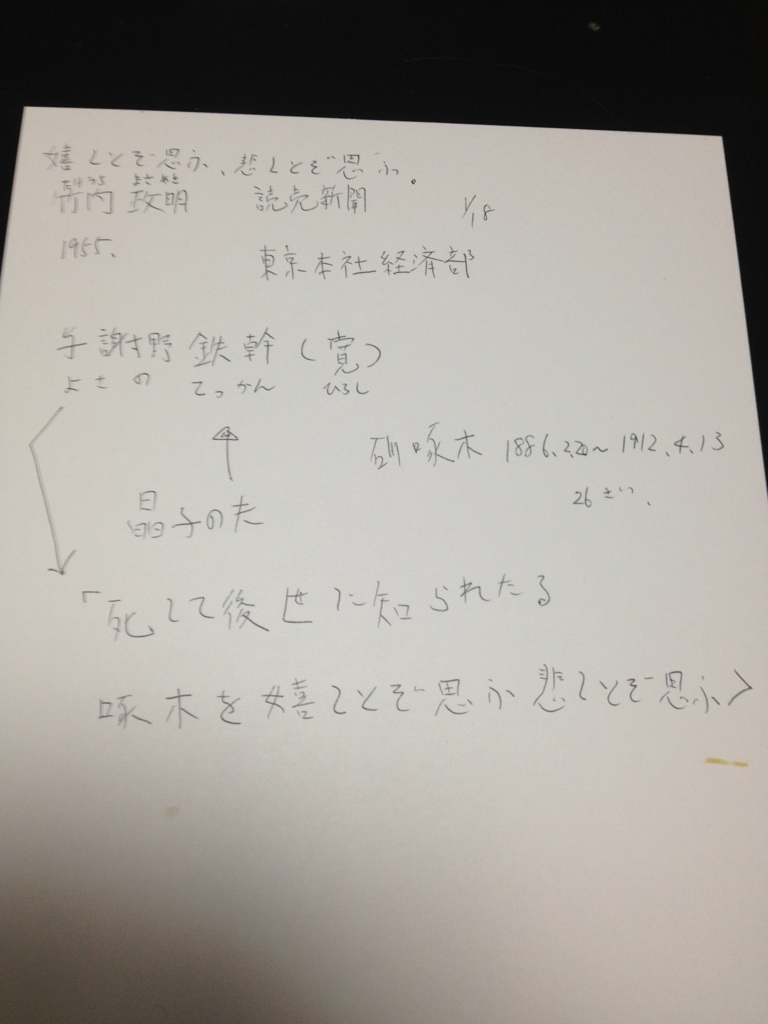 嬉しとぞ思ふ、悲しとぞ思ふ。
たけうち まさあき
竹内 政明 読売新聞 1/18
1955、
東京本社経済部
与謝野鉄幹(寛)
よさの てっかん ひろし
石川啄木 1886.2.20〜1912.4.13
26さい、
晶子の夫
「死して後世に知られたる
啄木を嬉しとぞ思ふ 悲しとぞ思ふ〉